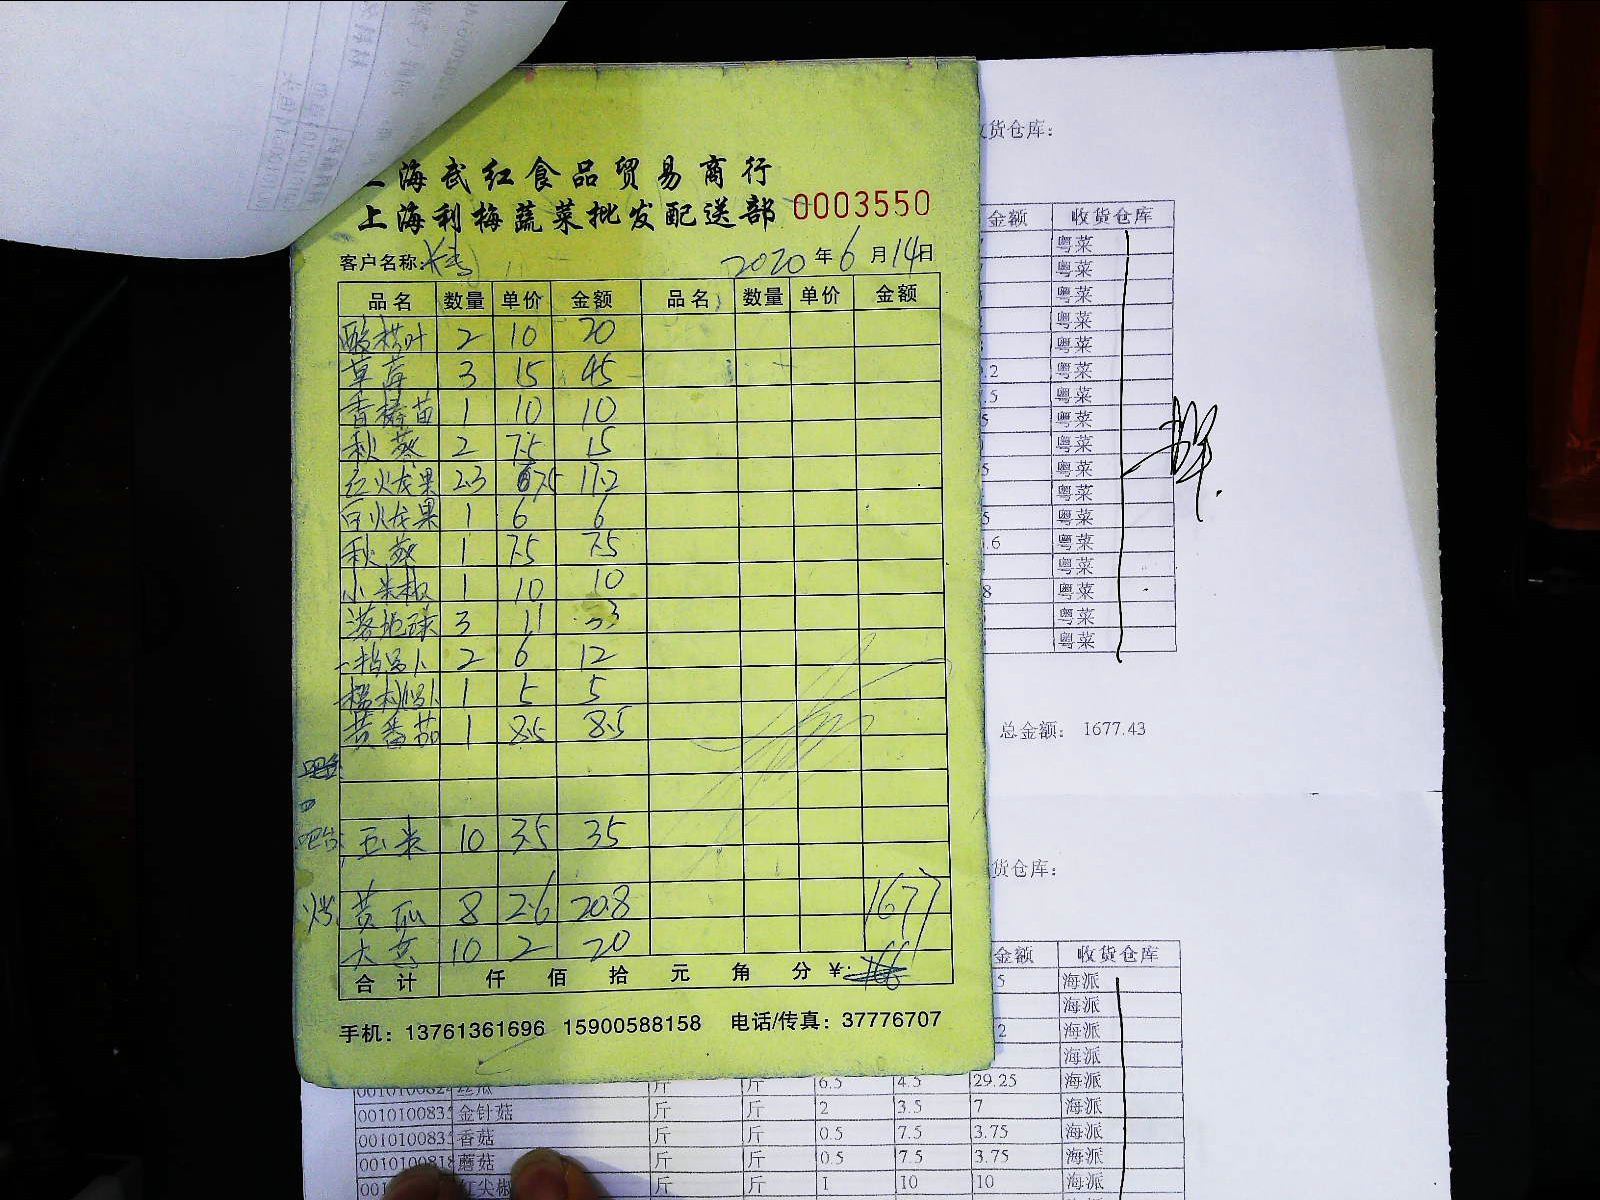 上海武红食品贸易商行
上海利梅蔬菜批发配送部 0003550
客户名称: 2020年6月14日
品名 数量 单价 金额 品名 数量 单价 金额
酸模叶 2 10 20
草莓 3 15 45
香椿苗 1 10 10
秋葵 2 7.5 15
红火龙果 2.3 6.75 17.2
白火龙果 1 6 6
秋葵 1 7.5 7.5
小米椒 1 10 10
3 11 33
2 6 12
1 5 5
黄番茄 1 8.5 8.5
吧台 玉米 10 3.5 35
黄瓜 8 2.6 20.8
1677
10 2 20
合计 仟 佰 拾 元 角 分 ¥:
手机: 13761361696 15900588158 电话/传真: 37776707
货仓库:
金额 收货仓库
粤菜
粤菜
粤菜
粤菜
粤菜
.2 粤菜
.5 粤菜
5 粤菜
粤菜
5 粤菜
粤菜
5 粤菜
.6 粤菜
粤菜
8 粤菜
粤菜
粤菜
总金额: 1677.43
货仓库:
金额 收货仓库
5 海派
海派
2 海派
海派
斤 斤 6.5 4.5 29.25 海派
001010083 金针菇 斤 斤 2 3.5 7 海派
001010083 香菇 斤 斤 0.5 7.5 3.75 海派
001010081 蘑菇 斤 斤 0.5 7.5 3.75 海派
001 红尖椒 斤 斤 1 10 10 海派